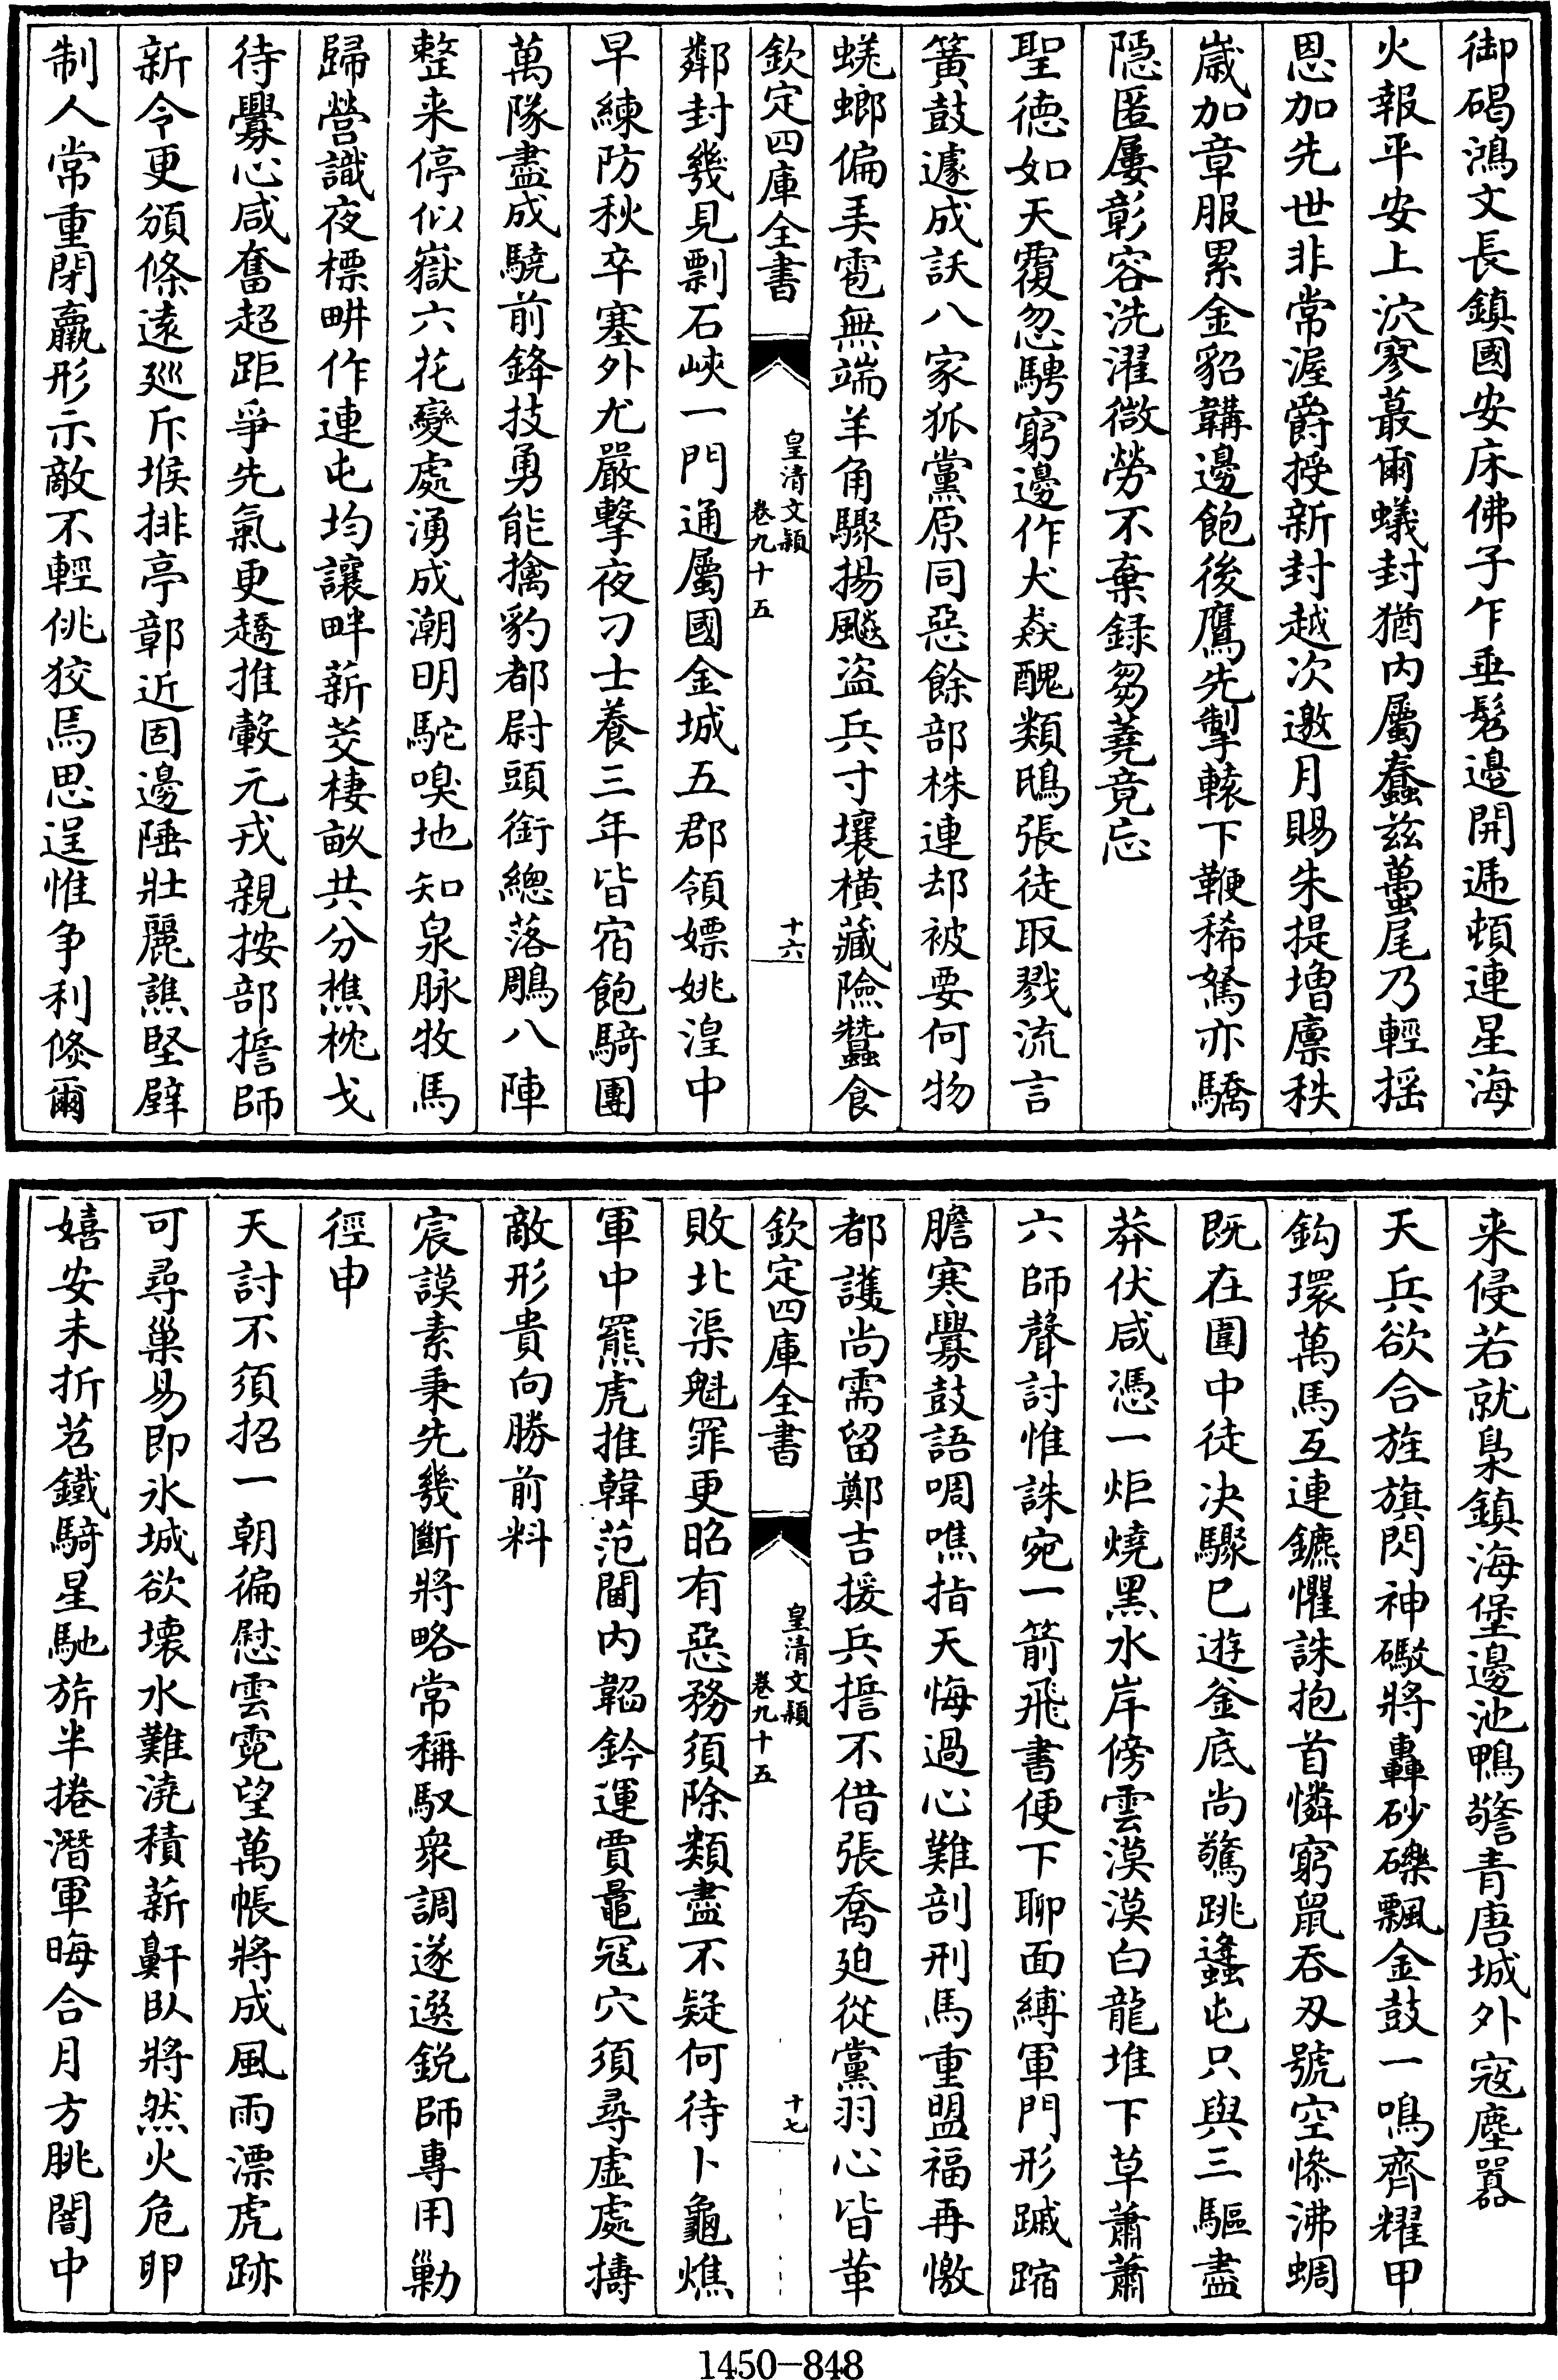 御碣鴻文長鎮國安床佛子乍垂髫邉開遞頓連星海
火報平安上泬寥蕞爾蟻封猶内屬蠢兹蠆尾乃輕揺
恩加先世非常渥爵授新封越次邀月賜朱提増廪秩
歳加章服累金貂韝邊飽後鷹先掣轅下鞭稀駑亦驕
隠匿屢彰容洗濯微勞不棄録芻蕘竟忘
聖德如天覆忽騁窮邊作犬猋醜類鴟張徒取戮流言
簧鼓遽成訞八家狐黨原同惡餘部株連却被要何物
蜣螂偏美雹無端羊角驟揚飈盗兵寸壤横藏險蠶食
欽定四庫全書
皇清文穎
卷九十五
十六
鄰封幾見剽石峽一門通屬國金城五郡領嫖姚湟中
早練防秋卒塞外尤嚴擊夜刁士養三年皆宿飽騎團
萬隊盡成驍前鋒技勇能擒豹都尉頭銜總落鵰八陣
整来停似嶽六花變處湧成潮明駝嗅地知泉脉牧馬
歸營識夜標畊作連屯均讓畔薪芟棲畝共分樵枕戈
待釁心咸奮超距爭先氣更趫推轂元戎親按部誓師
新令更頒條逺廵斥堠排亭鄣近固邊陲壯麗譙堅壁
制人常重閉羸形示敵不輕佻狡焉思逞惟争利倐爾
来侵若就梟鎮海堡邊池鴨警青唐城外寇塵囂
天兵欲合旌旗閃神礮將轟砂礫飄金鼓一鳴齊耀甲
鈎環萬馬互連鑣懼誅抱首憐窮鼠吞刄號空慘沸蜩
既在圍中徒决驟巳遊釡底尚驚跳蠭屯只與三驅盡
莽伏咸憑一炬燒黑水岸傍雲漠漠白龍堆下草蕭蕭
六師聲討惟誅宛一箭飛書便下聊面縛軍門形蹴踏
膽寒釁鼓語啁噍指天悔過心難剖刑馬重盟福再憿
都護尚需留鄭吉援兵誓不借張喬廹從黨羽心皆革
欽定四庫全書
皇清文穎
卷九十五
十七
敗北渠魁罪更昭有惡務須除類盡不疑何待卜龜燋
軍中羆虎推韓范閫内韜鈐運賈鼂冦穴須尋虚處擣
敵形貴向勝前料
宸謨素秉先幾斷將略常稱馭衆調遂選鋭師專用勦
徑申
天討不須招一朝徧慰雲霓望萬帳將成風雨漂虎跡
可尋巢易即氷城欲壊水難澆積薪鼾臥將然火危卵
嬉安未折苕鐵騎星馳旂半捲潛軍晦合月方朓闇中
1450-848